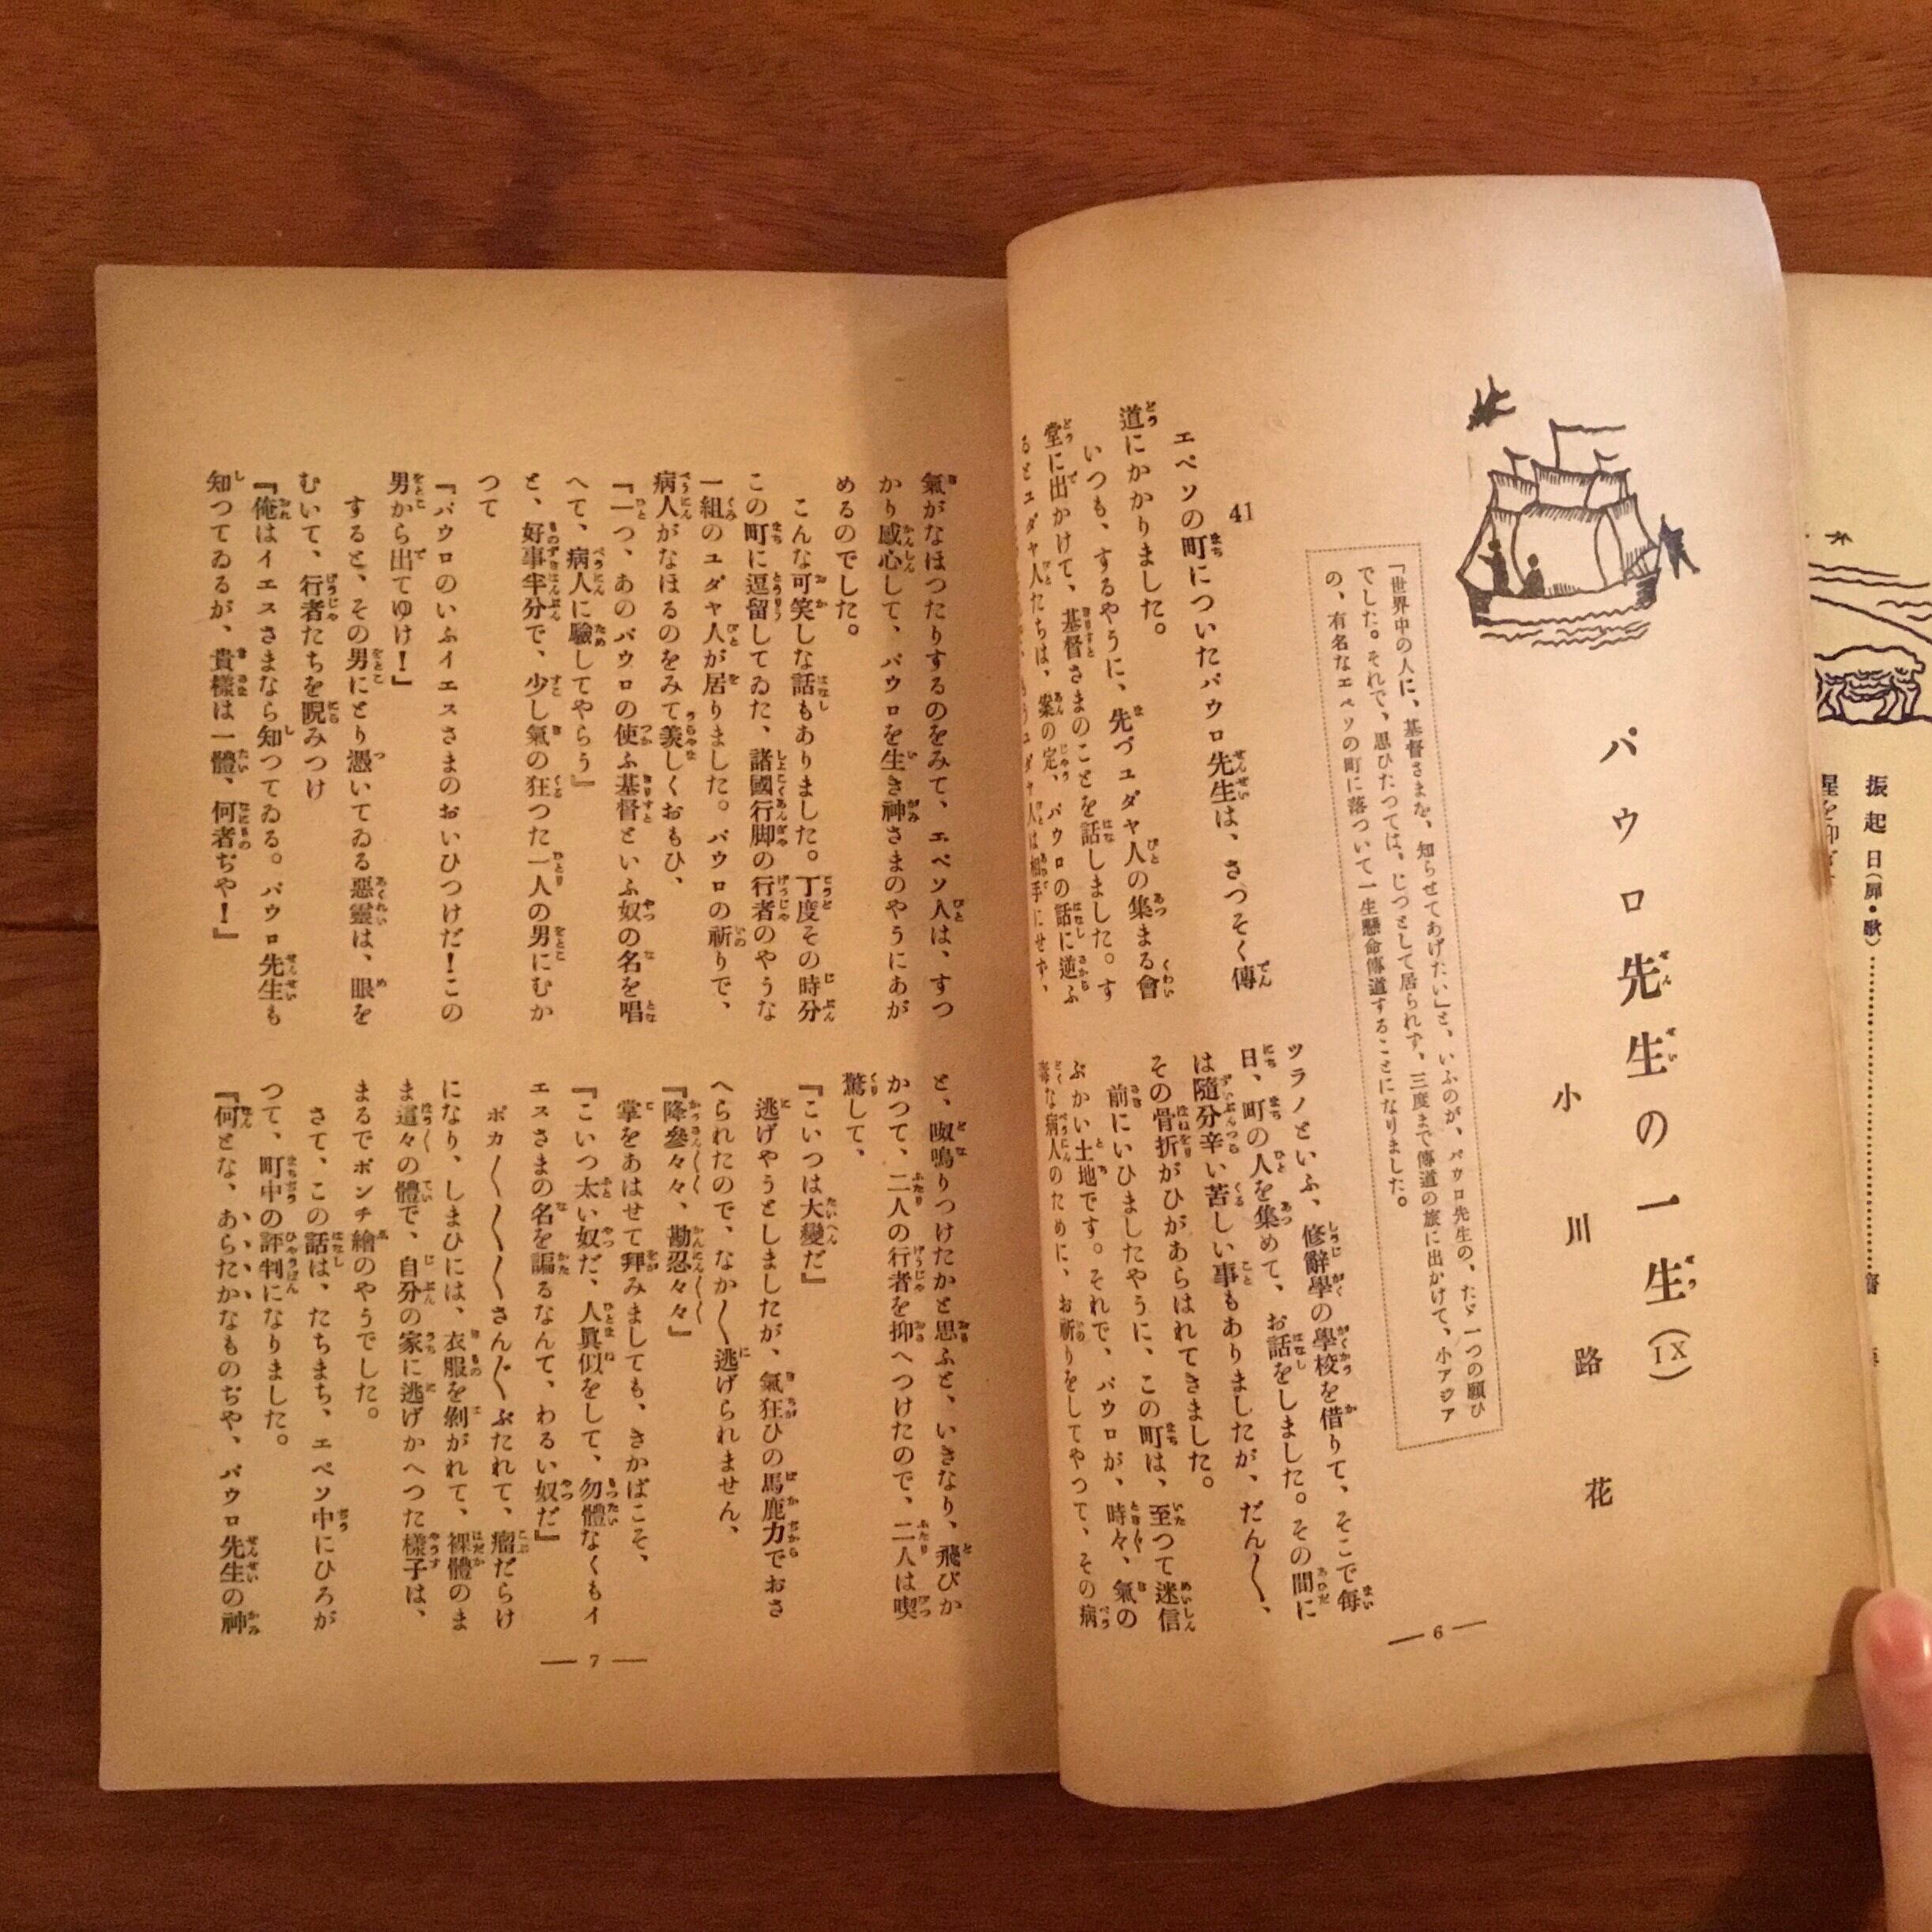 振起日(扉・歌)
パウロ先生の一生(IX)
小川路花
「世界中の人に、基督さまを、知らせてあげたい」と、いふのが、パウロ先生の、たゞ一つの願ひ
でした。それで、思ひたつては、じつとして居られず、三度まで傳道の旅に出かけて、小アジア
の、有名なエペソの町に落ついて一生懸命傳道することになりました。
41
エペソの町についたパウロ先生は、さつそく傳
道にかかりました。
いつも、するやうに、先づユダヤ人の集まる會
堂に出かけて、基督さまのことを話しました。す
るとユダヤ人たちは、案の定、パウロの話に逆ふ
ツラノといふ、修辭學の學校を借りて、そこで毎
日、町の人を集めて、お話をしました。その間に
は隨分辛い苦しい事もありましたが、だん〳〵、
その骨折がひがあらはれてきました。
前にいひましたやうに、この町は、至つて迷信
ぶかい土地です。それで、パウロが、時々、氣の
毒な病人のために、お祈りをしてやつて、その病
6
氣がなほつたりするのをみて、エペソ人は、すつ
かり感心して、パウロを生き神さまのやうにあが
めるのでした。
こんな可笑しな話もありました。丁度その時分
この町に逗留してゐた、諸國行脚の行者のやうな
一組のユダヤ人が居りました。パウロの祈りで、
病人がなほるのをみて羨しくおもひ、
『一つ、あのパウロの使ふ基督といふ奴の名を唱
へて、病人に驗してやらう』
と、好事半分で、少し氣の狂つた一人の男にむか
つて
『パウロのいふイエスさまのおいひつけだ!この
男から出てゆけ!』
すると、その男にとり憑いてゐる惡靈は、眼を
むいて、行者たちを睨みつけ
『俺はイエスさまなら知つてゐる。パウロ先生も
知つてゐるが、貴樣は一體、何者ぢや!』
と、呶鳴りつけたかと思ふと、いきなり、飛びか
かつて、二人の行者を抑へつけたので、二人は喫
驚して、
『こいつは大變だ』
逃げやうとしましたが、氣狂ひの馬鹿力でおさ
へられたので、なか〳〵逃げられません、
『降參々々、勘忍々々』
掌をあはせて拜みましても、きかばこそ、
『こいつ太い奴だ、人眞似をして、勿體なくもイ
エスさまの名を騙るなんて、わるい奴だ』
ポカ〳〵〳〵〳〵さん〴〵ぶたれて、瘤だらけ
になり、しまひには、衣服を剝がれて、裸體のま
ま這々の體で、自分の家に逃げかへつた樣子は、
まるでポンチ繪のやうでした。
さて、この話は、たちまち、エペソ中にひろが
つて、町中の評判になりました。
『何とな、あらたかなものぢや、パウロ先生の神
7